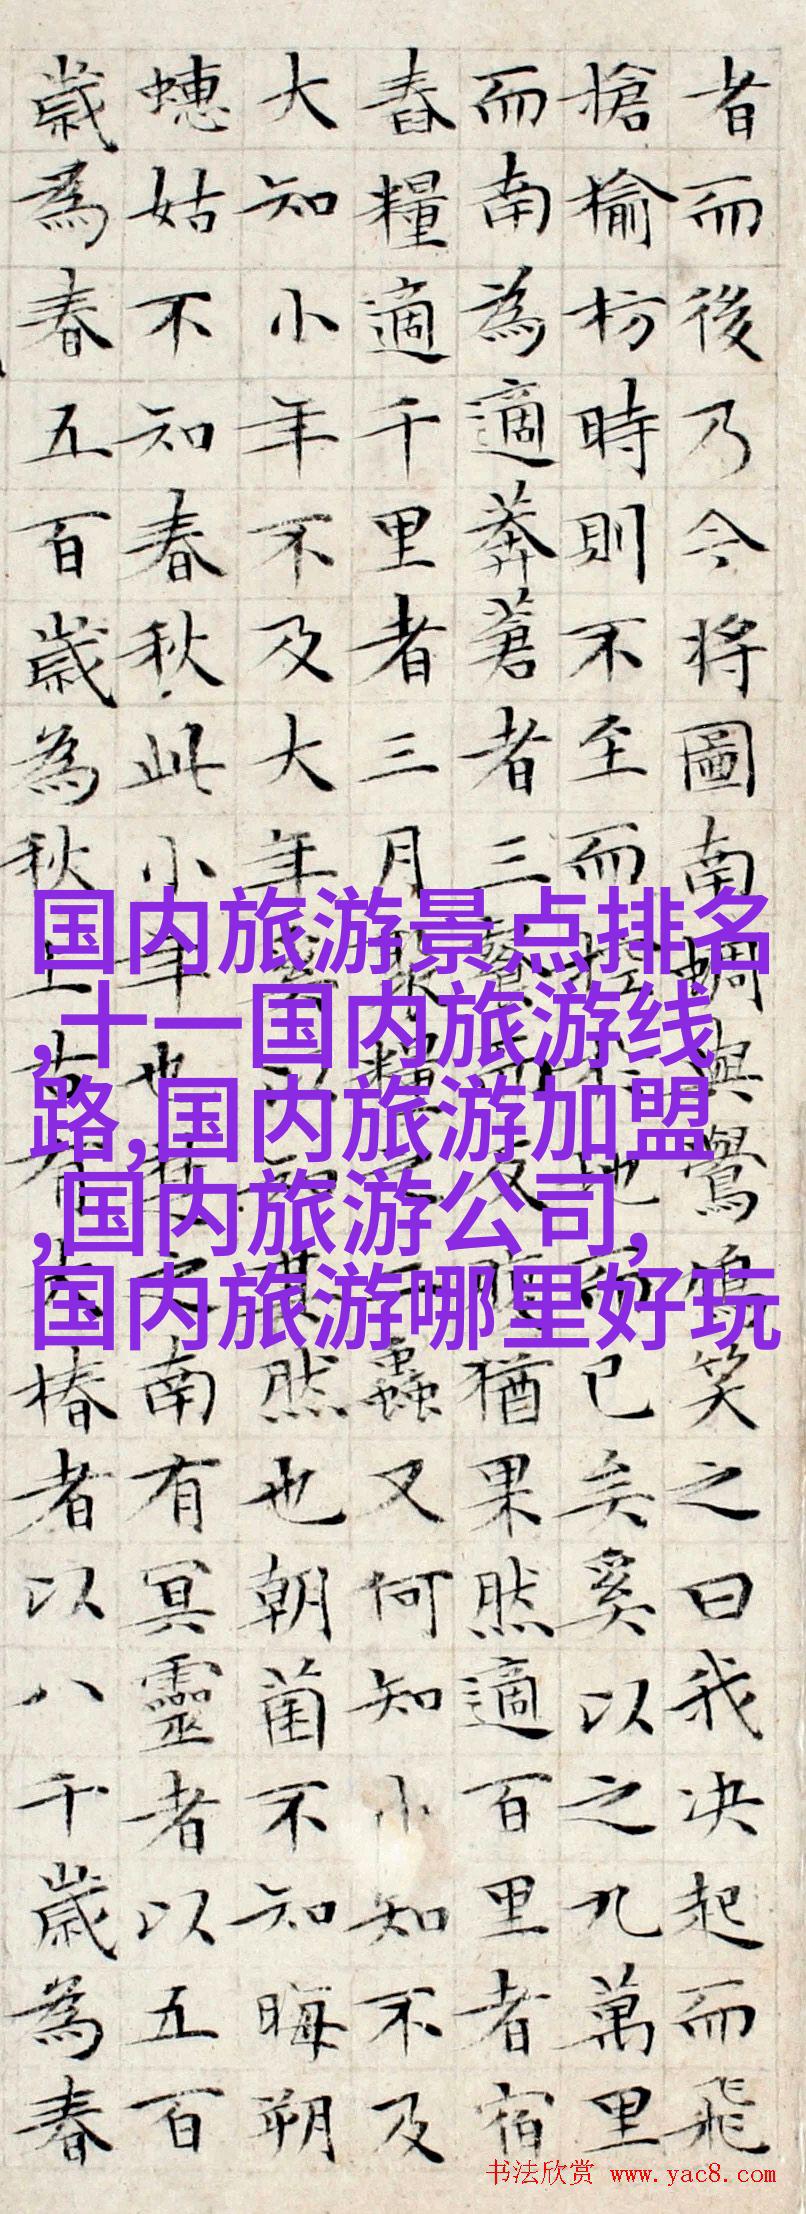 者而後乃今将圖南蜩與鷽鳩笑之曰我决起而飛
搶榆枋時則不至而控於地而已矣奚以之九萬里
而南為適莽蒼者三飡而反腹猶果然適百里者宿
舂糧適千里者三月聚糧之二蟲又何知小知不及
大知小年不及大年奚以知其然也朝菌不知晦朔
蟪蛄不知春秋此小年也楚之南有冥靈者以五百
歲為春五百歲為秋上古有大椿者以八千歲為春
国内旅游景点排名
,十一国内旅游线
路,国内旅游加盟
,国内旅游公司,
国内旅游哪里好玩
书法欣赏 www.yac8.com